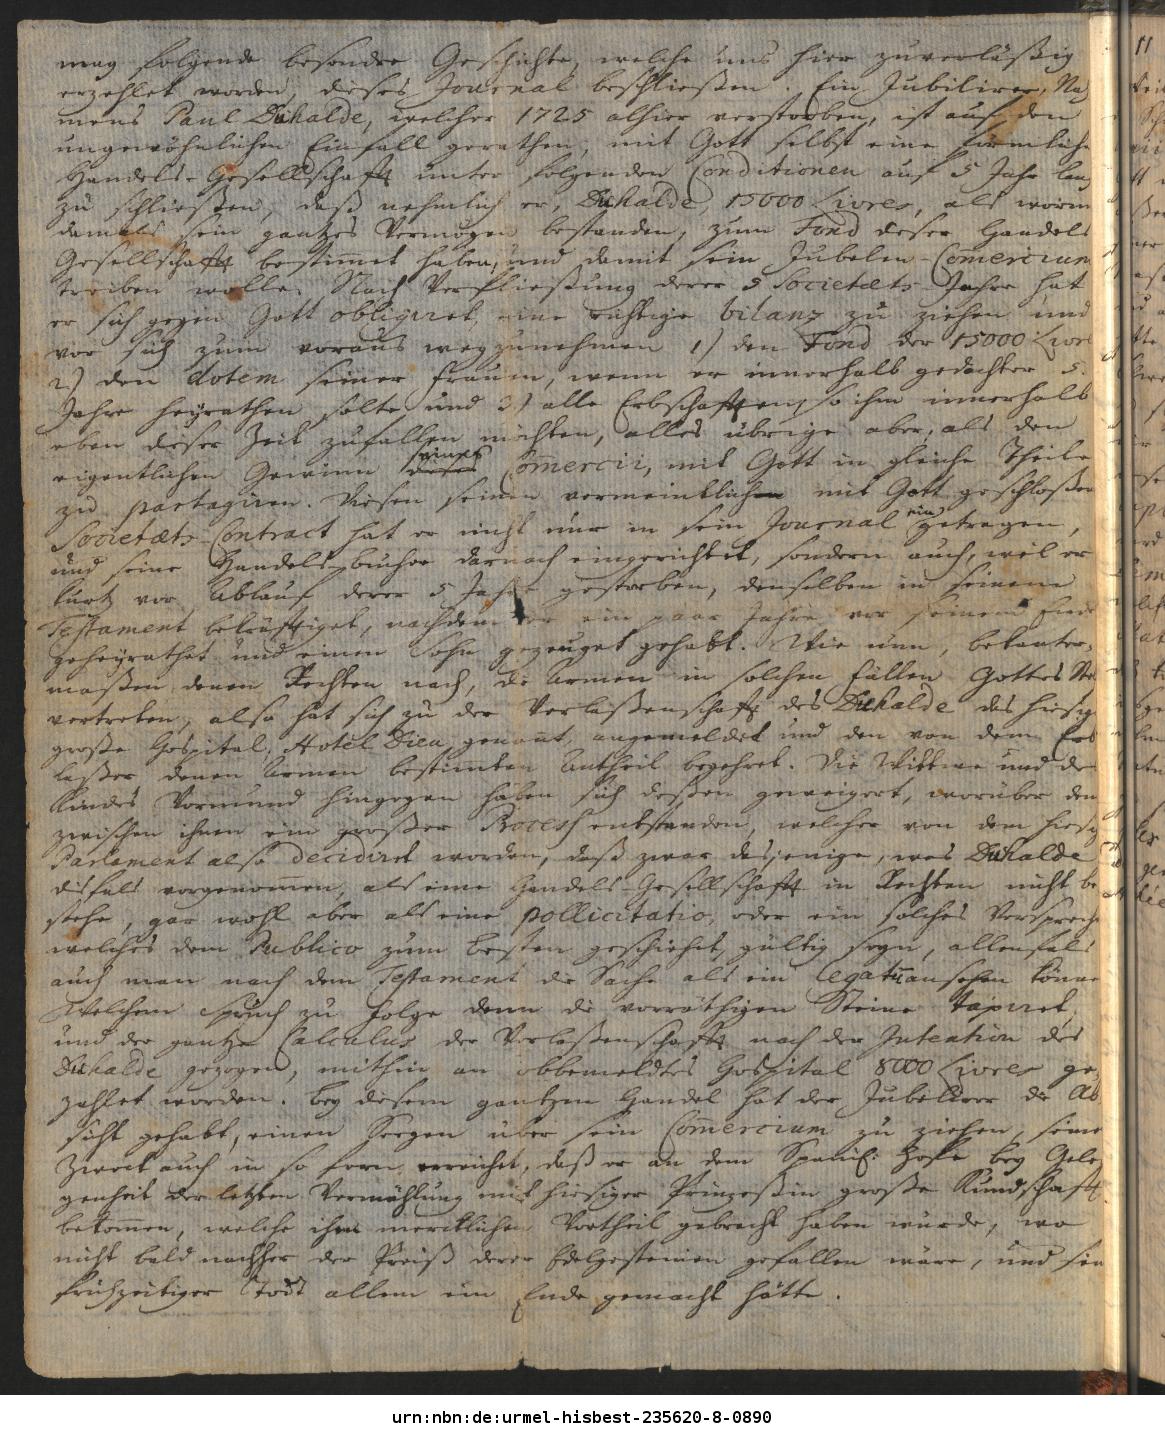 mag folgende besondre Geschichte, welche uns hier zuverläßig
erzehlet worden, dieses Journal beschließen. Ein Jubilirer, Na-
mens Paul Duhalde, welcher 1725 alhier verstorben, ist auf den
ungewöhnlichen Einfall gerathen, mit Gott selbst eine förmliche
Handels-Gesellschafft unter folgenden Conditionen auf 5 Jahr lang
zu schließen, daß nehmlich er, Duhalde, 15000 Livres, als worin
damals sein gantzes Vermögen bestanden, zum Fond dieser Handels
Gesellschafft bestimet haben, und damit sein Jubelen-Comercium
treiben wolle. Nach Verfließung derer 5 Societæts-Jahre hat
er sich gegen Gott obligiret, eine richtige bilanz zu ziehen und
vor sich zum voraus wegzunehmen 1) den Fond der 15000 Livres
2) den dotem seiner Frauen, wenn er innerhalb gedachter 5.
Jahre heyrathen solte und 3) alle Erbschafften, so ihm innerhalb
eben dieser Zeit zufallen möchten, alles übrige aber, als den
eigentlichen Gewinn dieses seines Comercii, mit Gott in gleiche Theile
zu partagiren. Diesen seinen vermeintlichen mit Gott geschloßen
Societæts-Contract hat er nicht nur in sein Journal eingetragen,
und seine Handels-bücher darnach eingerichtet, sondern auch, weil er
kurtz vor Ablauf derer 5 Jahre gestorben, denselben in seinem
Testament bekräfftiget, nachdem er ein paar Jahre vor seinem Ende
geheyrathet und einen Sohn gezeuget gehabt. Wie nun, bekanter-
maßen denen Rechten nach, die Armen in solchen Fällen Gottes Ste
vertreten, also hat sich zu der Verlaßenschafft des Duhalde das hiesige
große Hospital, Hotel Dieu genant, angemeldet und den von dem Erb
laßer denen Armen bestimten Antheil begehret. Die Wittwe und des
Kindes Vormund hingegen haben sich deßen geweigert, worüber den
zwischen ihnen ein großer Process entstanden, welcher von dem hiesig
Parlament also decidiret worden, daß zwar dasjenige, was Duhalde
disfals vorgenomen, als eine Handels-Gesellschafft in Rechten nicht be-
stehe, gar wohl aber als eine pollicitatio, oder ein solches Versprechen
welches dem Publico zum besten geschiehet, gültig seyn, allenfals
auch man nach dem Testament die Sache als ein legatum ansehen könne
Welchem Spruch zu folge denn die vorräthigen Steine taxiret,
und der gantze Calculus der Verlaßenschafft nach der Intention des
Duhalde gezogen, mithin an obbemeldtes Hospital 8000 Livres ge-
zahlet worden. Bey diesem gantzen Handel hat der Jubelirer die Ab-
sicht gehabt, einen Seegen über sein Comercium zu ziehen, seine
Zweck auch in so fern erreichet, daß er an dem Spanis: Hofe bey Gele-
genheit der letzten Vermählung mit hiesiger Prinzeßin große Kundschafft
bekomen, welche ihm mercklichen Vortheil gebracht haben würde, wo
nicht bald nachher der Preiß derer Edelgesteinen gefallen wäre, und sein
frühzeitiger Todt allem ein Ende gemacht hätte.
urn:nbn:de:urmel-hisbest-235620-8-0890